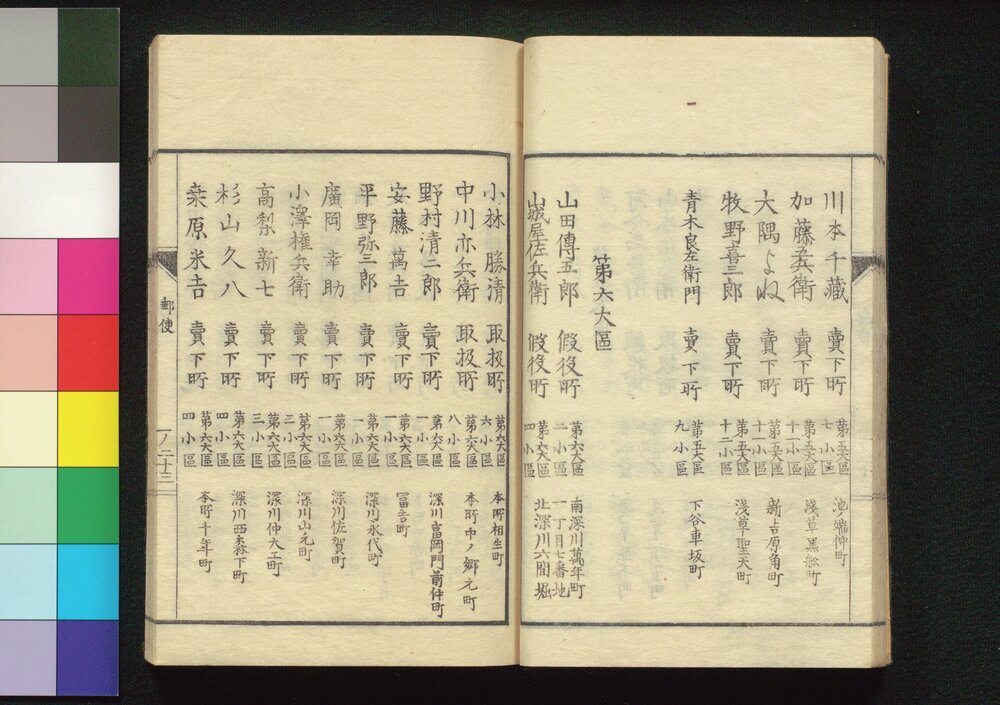 川本千藏 賣下所 第五大區七小區 池ノ端仲町
加藤兵衛 賣下所 第五大區十一小區 淺草黒舩町
大隅よね 賣下所 第五大區十一小區 新吉原角町
牧野喜三郎 賣下所 第五大區十二小區 淺草聖天町
青木良左衛門 賣下所 第五大區九小區 下谷車坂町
第六大區
山田傳五郎 假役所 第六大區二小區 南深川萬年町一丁目七番地
山城屋佐兵衛 假役所 第六大區四小區 北深川六間堀
小林勝清 取扱所 第六大區六小區 本所相生町
中川亦兵衛 取扱所 第六大區八小區 本所中ノ郷元町
野村清二郎 賣下所 第六大區一小區 深川富岡門前仲町
安藤萬吉 賣下所 第六大區一小區 冨吉町
平野弥三郎 賣下所 第六大區一小區 深川永代町
廣岡幸助 賣下所 第六大區一小區 深川佐賀町
小澤權兵衛 賣下所 第六大區三小區 深川山元町
高梨新七 賣下所 第六大區三小區 深川仲大工町
杉山久八 賣下所 第六大區四小區 深川西森下町
桒原米吉 賣下所 第六大區四小區 本所千年町
郵使
一ノ二十三